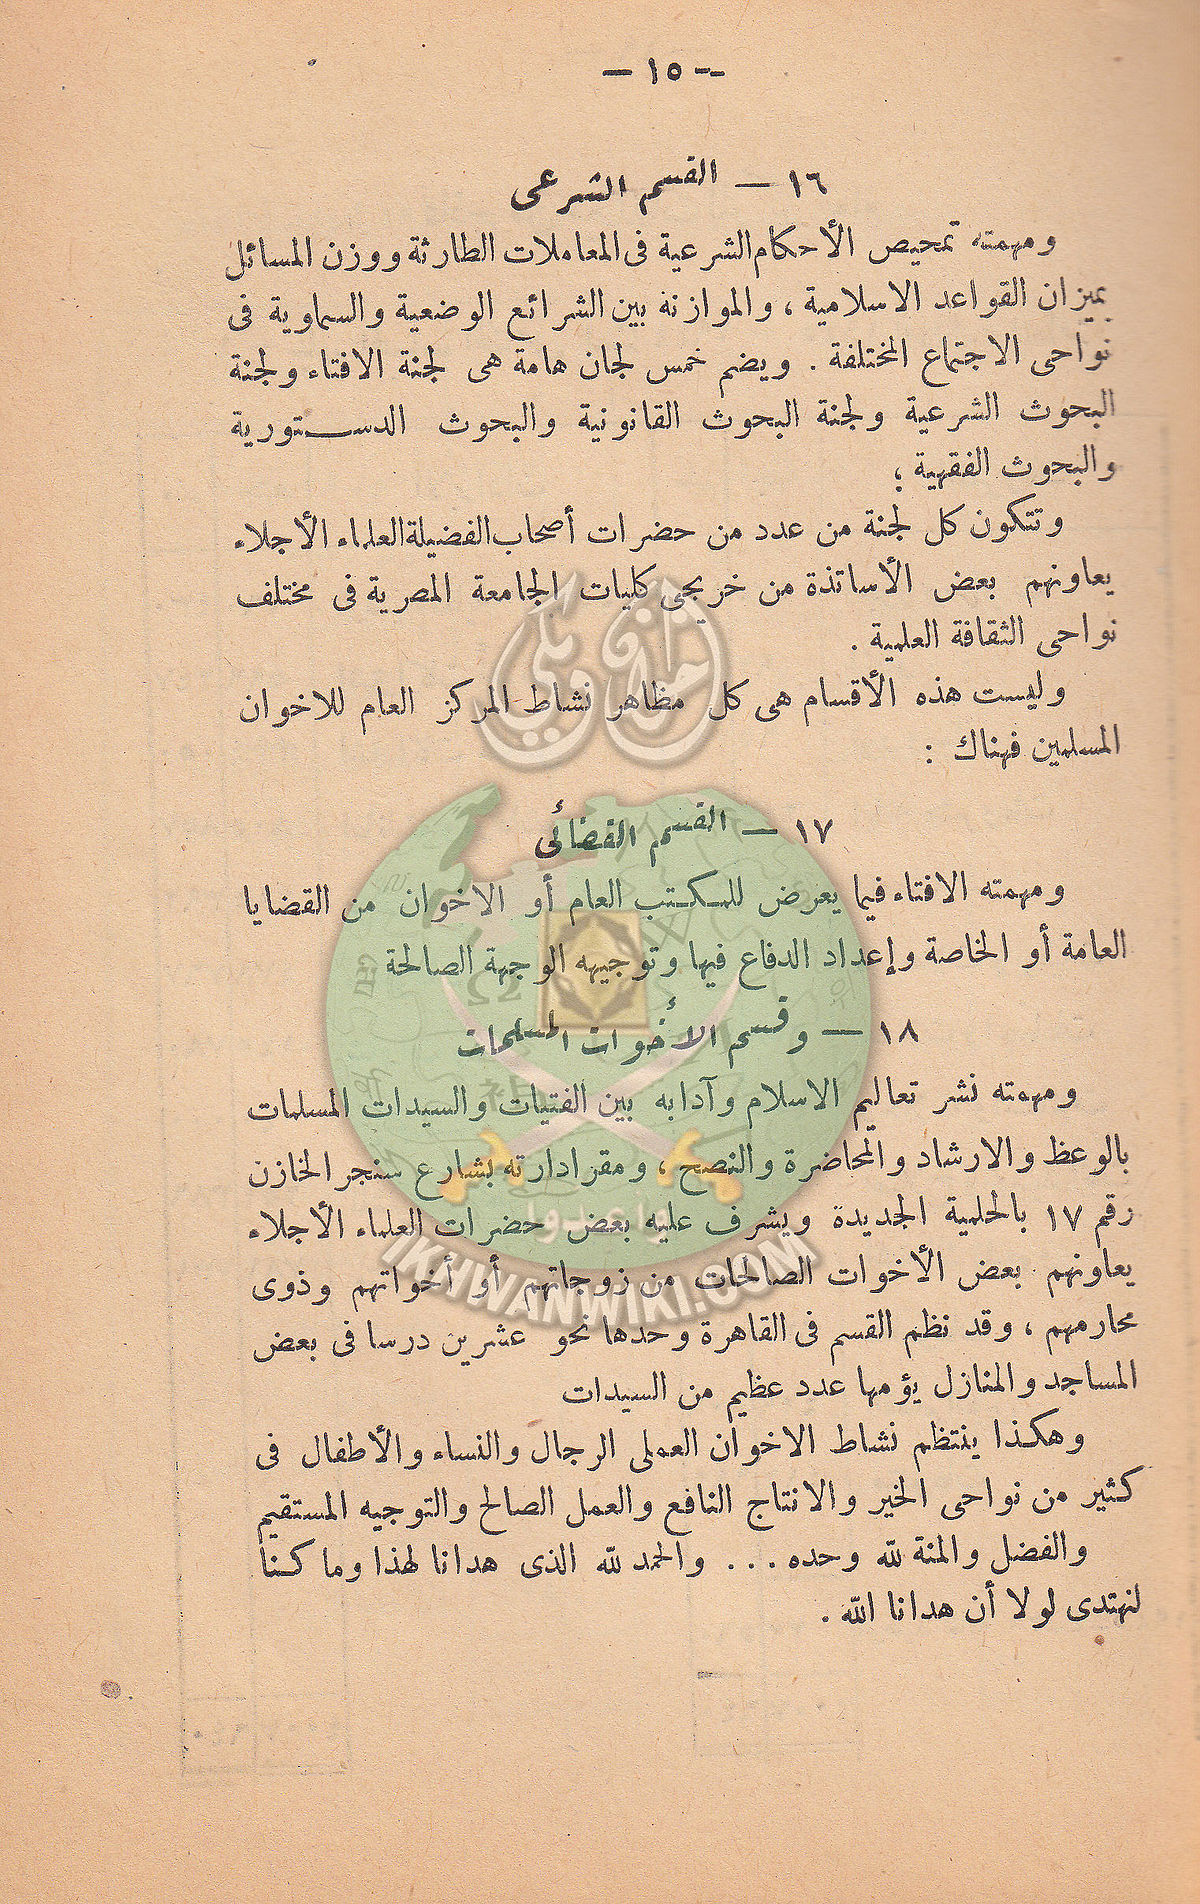 — ١٥ —
١٦ — القسم الشرعى
ومهمته تمحيص الأحكام الشرعية فى المعاملات الطارئة ووزن المسائل
بميزان القواعد الاسلامية ، والموازنة بين الشرائع الوضعية والسماوية فى
نواحى الاجتماع المختلفة . ويضم خمس لجان هامة هى لجنة الافتاء ولجنة
البحوث الشرعية ولجنة البحوث القانونية والبحوث الدستورية
والبحوث الفقهية ؛
وتتكون كل لجنة من عدد من حضرات أصحاب الفضيلة العلماء الأجلاء
يعاونهم بعض الأساتذة من خريجى كليات الجامعة المصرية فى مختلف
نواحى الثقافة العلمية .
وليست هذه الأقسام هى كل مظاهر نشاط المركز العام للاخوان
المسلمين فهناك :
١٧ — القسم القضائى
ومهمته الافتاء فيما يعرض للمكتب العام أو الاخوان من القضايا
العامة أو الخاصة وإعداد الدفاع فيها وتوجيهه الوجهة الصالحة
١٨ — وقسم الأخوات المسلمات
ومهمته نشر تعاليم الاسلام وآدابه بين الفتيات والسيدات المسلمات
بالوعظ والارشاد والمحاضرة والنصح ، ومقر ادارته بشارع سنجر الخازن
رقم ١٧ بالحلمية الجديدة ويشرف عليه بعض حضرات العلماء الأجلاء
يعاونهم بعض الأخوات الصالحات من زوجاتهم أو أخواتهم وذوى
محارمهم ، وقد نظم القسم فى القاهرة وحدها نحو عشرين درسا فى بعض
المساجد والمنازل يؤمها عدد عظيم من السيدات
وهكذا ينتظم نشاط الاخوان العملى الرجال والنساء والأطفال فى
كثير من نواحى الخير والانتاج النافع والعمل الصالح والتوجيه المستقيم
والفضل والمنة لله وحده ... والحمد لله الذى هدانا لهذا وما كنا
لنهتدى لولا أن هدانا الله .
إخوان ويكي
وأعدوا
IKHWANWIKI.COM